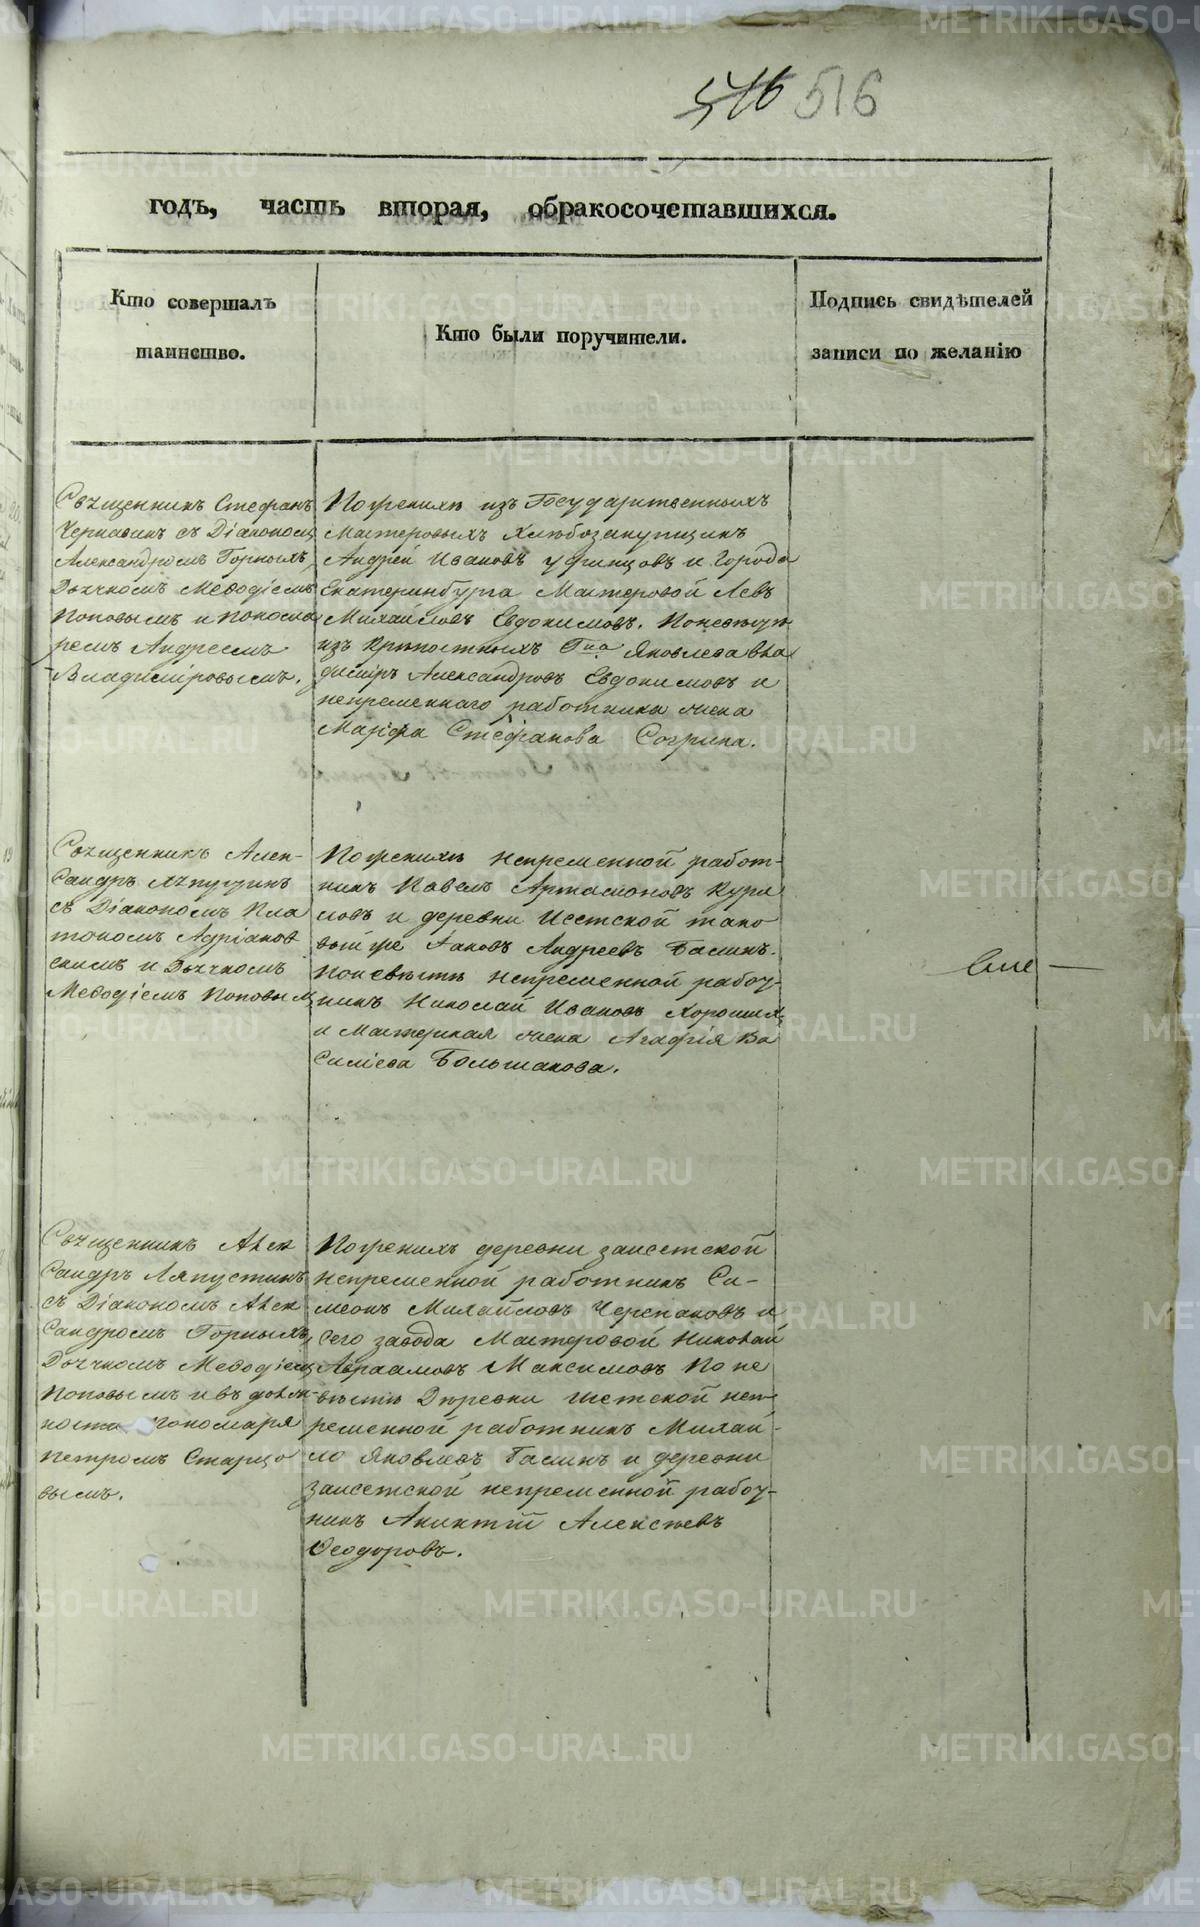 516 516
годъ, часть вторая, обракосочетавшихся.
Кто совершалъ
таинство.
Кто были поручители.
Подпись свидѣтелей
записи по желанію
Священникъ Стефанъ
Чернавинъ съ Діакономъ
Александромъ Горныхъ,
Дьячкомъ Меѳодіемъ
Поповымъ и пономо
ремъ Андреемъ
Владиміровымъ.
По женихѣ изъ Государственныхъ
Мастеровыхъ Хлѣбозакупщикъ
Андрей Ивановъ Уфинцовъ и Города
Екатеринбурга Мастеровой Левъ
Михайловъ Евдокимовъ. По невѣстѣ
изъ крѣпостныхъ Гна Яковлева Вла
димиръ Александровъ Евдокимовъ и
непременнаго работника жена
Марѳа Стефанова Согрина.
Священникъ Алек-
сандръ Ляпустинъ
съ Діакономъ Пла
тономъ Адріанов
скимъ и Дьячкомъ
Меѳодіемъ Поповымъ
По женихѣ непременной работ-
никъ Павелъ Артамоновъ Кури
ловъ и деревни Исетской тако
войже Іаковъ Андреевъ Балинъ.
По невѣстѣ непременной рабоч-
никъ Николай Ивановъ Хорошихъ
и Мастерская жена Агафія Ва
силіева Большакова.
Священникъ Алек
сандръ Ляпустинъ
съ Діакономъ Алек
сандромъ Горныхъ,
Дьячкомъ Меѳодіемъ
Поповымъ и въ долж-
ности пономаря
Петромъ Старцо
вымъ.
По женихѣ деревни заисетской
непременной работникъ Си-
меонъ Михайловъ Черепановъ и
сего завода Мастеровой Николай
Авраамовъ Максимовъ По не
вѣстѣ Деревни Исетской неп-
ременной работникъ Михай-
ло Яковлевъ Балинъ и деревни
Заисетской непременной рабоч-
никъ Алексѣевъ
Ѳеодоровъ.
METRIKI.GASO-URAL.RU